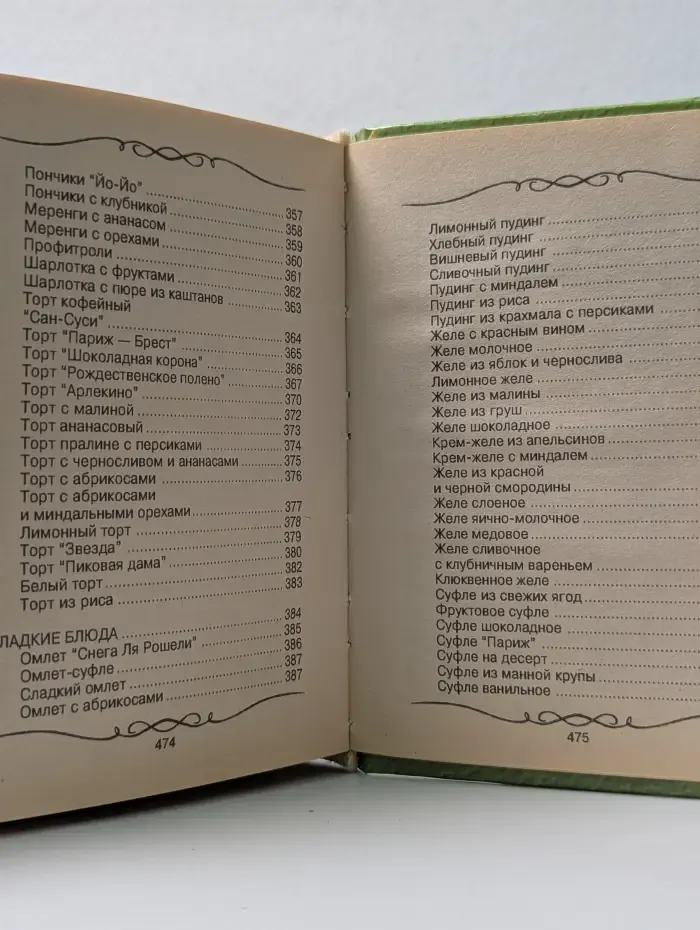 Пончики "Йо-Йо" 357
Пончики с клубникой 358
Меренги с ананасом 359
Меренги с орехами 360
Профитроли 361
Шарлотка с фруктами 362
Шарлотка с пюре из каштанов 363
Торт кофейный
"Сан-Суси" 364
Торт "Париж — Брест" 365
Торт "Шоколадная корона" 366
Торт "Рождественское полено" 367
Торт "Арлекино" 370
Торт с малиной 372
Торт ананасовый 373
Торт пралине с персиками 374
Торт с черносливом и ананасами 375
Торт с абрикосами 376
Торт с абрикосами
и миндальными орехами 377
Лимонный торт 378
Торт "Звезда" 379
Торт "Пиковая дама" 380
Белый торт 382
Торт из риса 383
ЛАДКИЕ БЛЮДА 384
Омлет "Снега Ля Рошели" 385
Омлет-суфле 386
Сладкий омлет 387
Омлет с абрикосами 387
474
Лимонный пудинг
Хлебный пудинг
Вишневый пудинг
Сливочный пудинг
Пудинг с миндалем
Пудинг из риса
Пудинг из крахмала с персиками
Желе с красным вином
Желе молочное
Желе из яблок и чернослива
Лимонное желе
Желе из малины
Желе из груш
Желе шоколадное
Крем-желе из апельсинов
Крем-желе с миндалем
Желе из красной
и черной смородины
Желе слоеное
Желе яично-молочное
Желе медовое
Желе сливочное
с клубничным вареньем
Клюквенное желе
Суфле из свежих ягод
Фруктовое суфле
Суфле шоколадное
Суфле "Париж"
Суфле на десерт
Суфле из манной крупы
Суфле ванильное
475